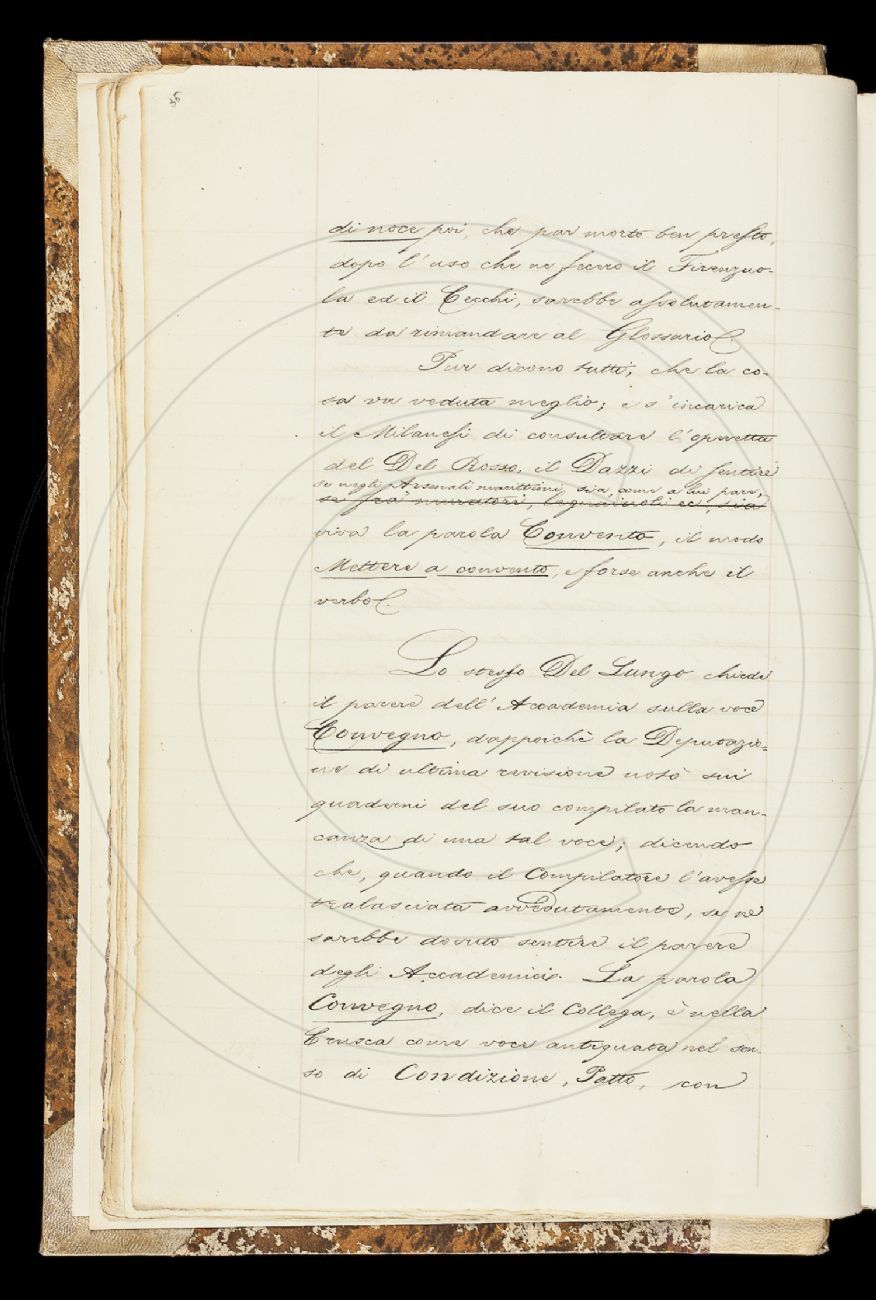 35
di noce poi, che par morto ben presto,
dopo l'uso che ne fecero il Firenzuo-
la ed il Cecchi, sarebbe assolutamen-
te da rimandare al Glossario.
Pur dicono tutti, che la co-
sa va veduta meglio; e s'incarica
il Milanesi di consultare l'operetta
del Del Rosso, il Dazzi di sentire
se negli Arsenali marittimi sia, come a lui pare,
se fra' muratori, legnaiuoli ec, sia
viva la parola Convento, il modo
Mettere a convento, e forse anche il
verbo.
Lo stesso Del Lungo chiede
il parere dell'Accademia sulla voce
Convegno, dappoichè la Deputazio-
ne di ultima revisione notò sui
quaderni del suo compilato la man-
canza di una tal voce; dicendo
che, quando il Compilatore l'avesse
tralasciata avvedutamente, se ne
sarebbe dovuto sentire il parere
degli Accademici. La parola
Convegno, dice il Collega, è nella
Crusca come voce antiquata nel sen-
so di Condizione, Patto, con